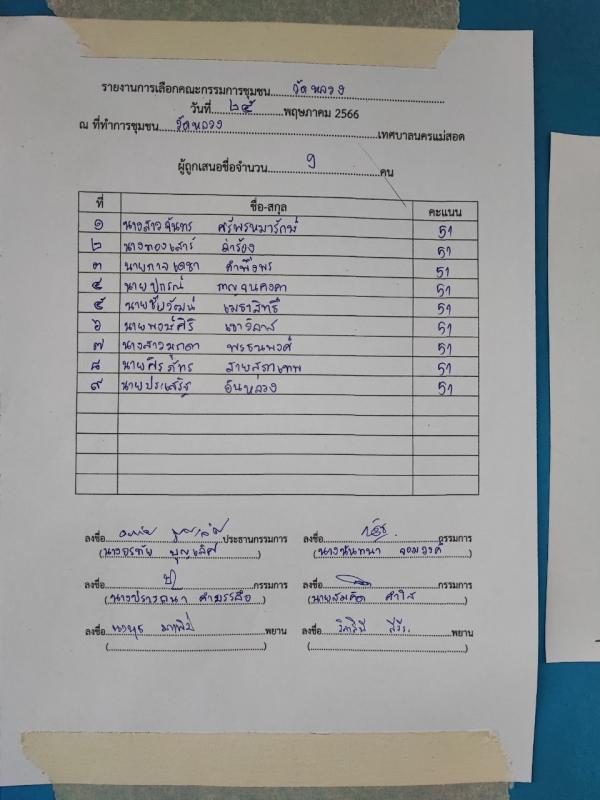 รายงานการเลือกคณะกรรมการชุมชน วัดหลวง
วันที่ ๒๕ พฤษภาคม 2566
ณ ที่ทำการชุมชน วัดหลวง เทศบาลนครแม่สอด
ผู้ถูกเสนอชื่อจำนวน 9 คน
ที่ ชื่อ-สกุล คะแนน
๑ นางสาวจันทร ศรีพรหมารักษ์ 51
๒ นางทองเสาร์ 51
๓ นาย คำพึ่งพร 51
๔ นายปกรณ์ กาญจนคงคา 51
๕ นายชัยวัฒน์ เมธาสิทธิ์ 51
๖ นายพงษ์ศิริ 51
๗ นางสาวมุกดา พรธนพงศ์ 51
๘ นายศิรภัทร สายสุดาเทพ 51
๙ นายประเสริฐ อินหลวง 51
ลงชื่อ ประธานกรรมการ ลงชื่อ กรรมการ
(นางอรทัย บุญเลิศ) (นางนันทนา จอมวงค์)
ลงชื่อ กรรมการ ลงชื่อ กรรมการ
(นางปรารถนา) (นายสมคิด คำใส)
ลงชื่อ พยาน ลงชื่อ พยาน